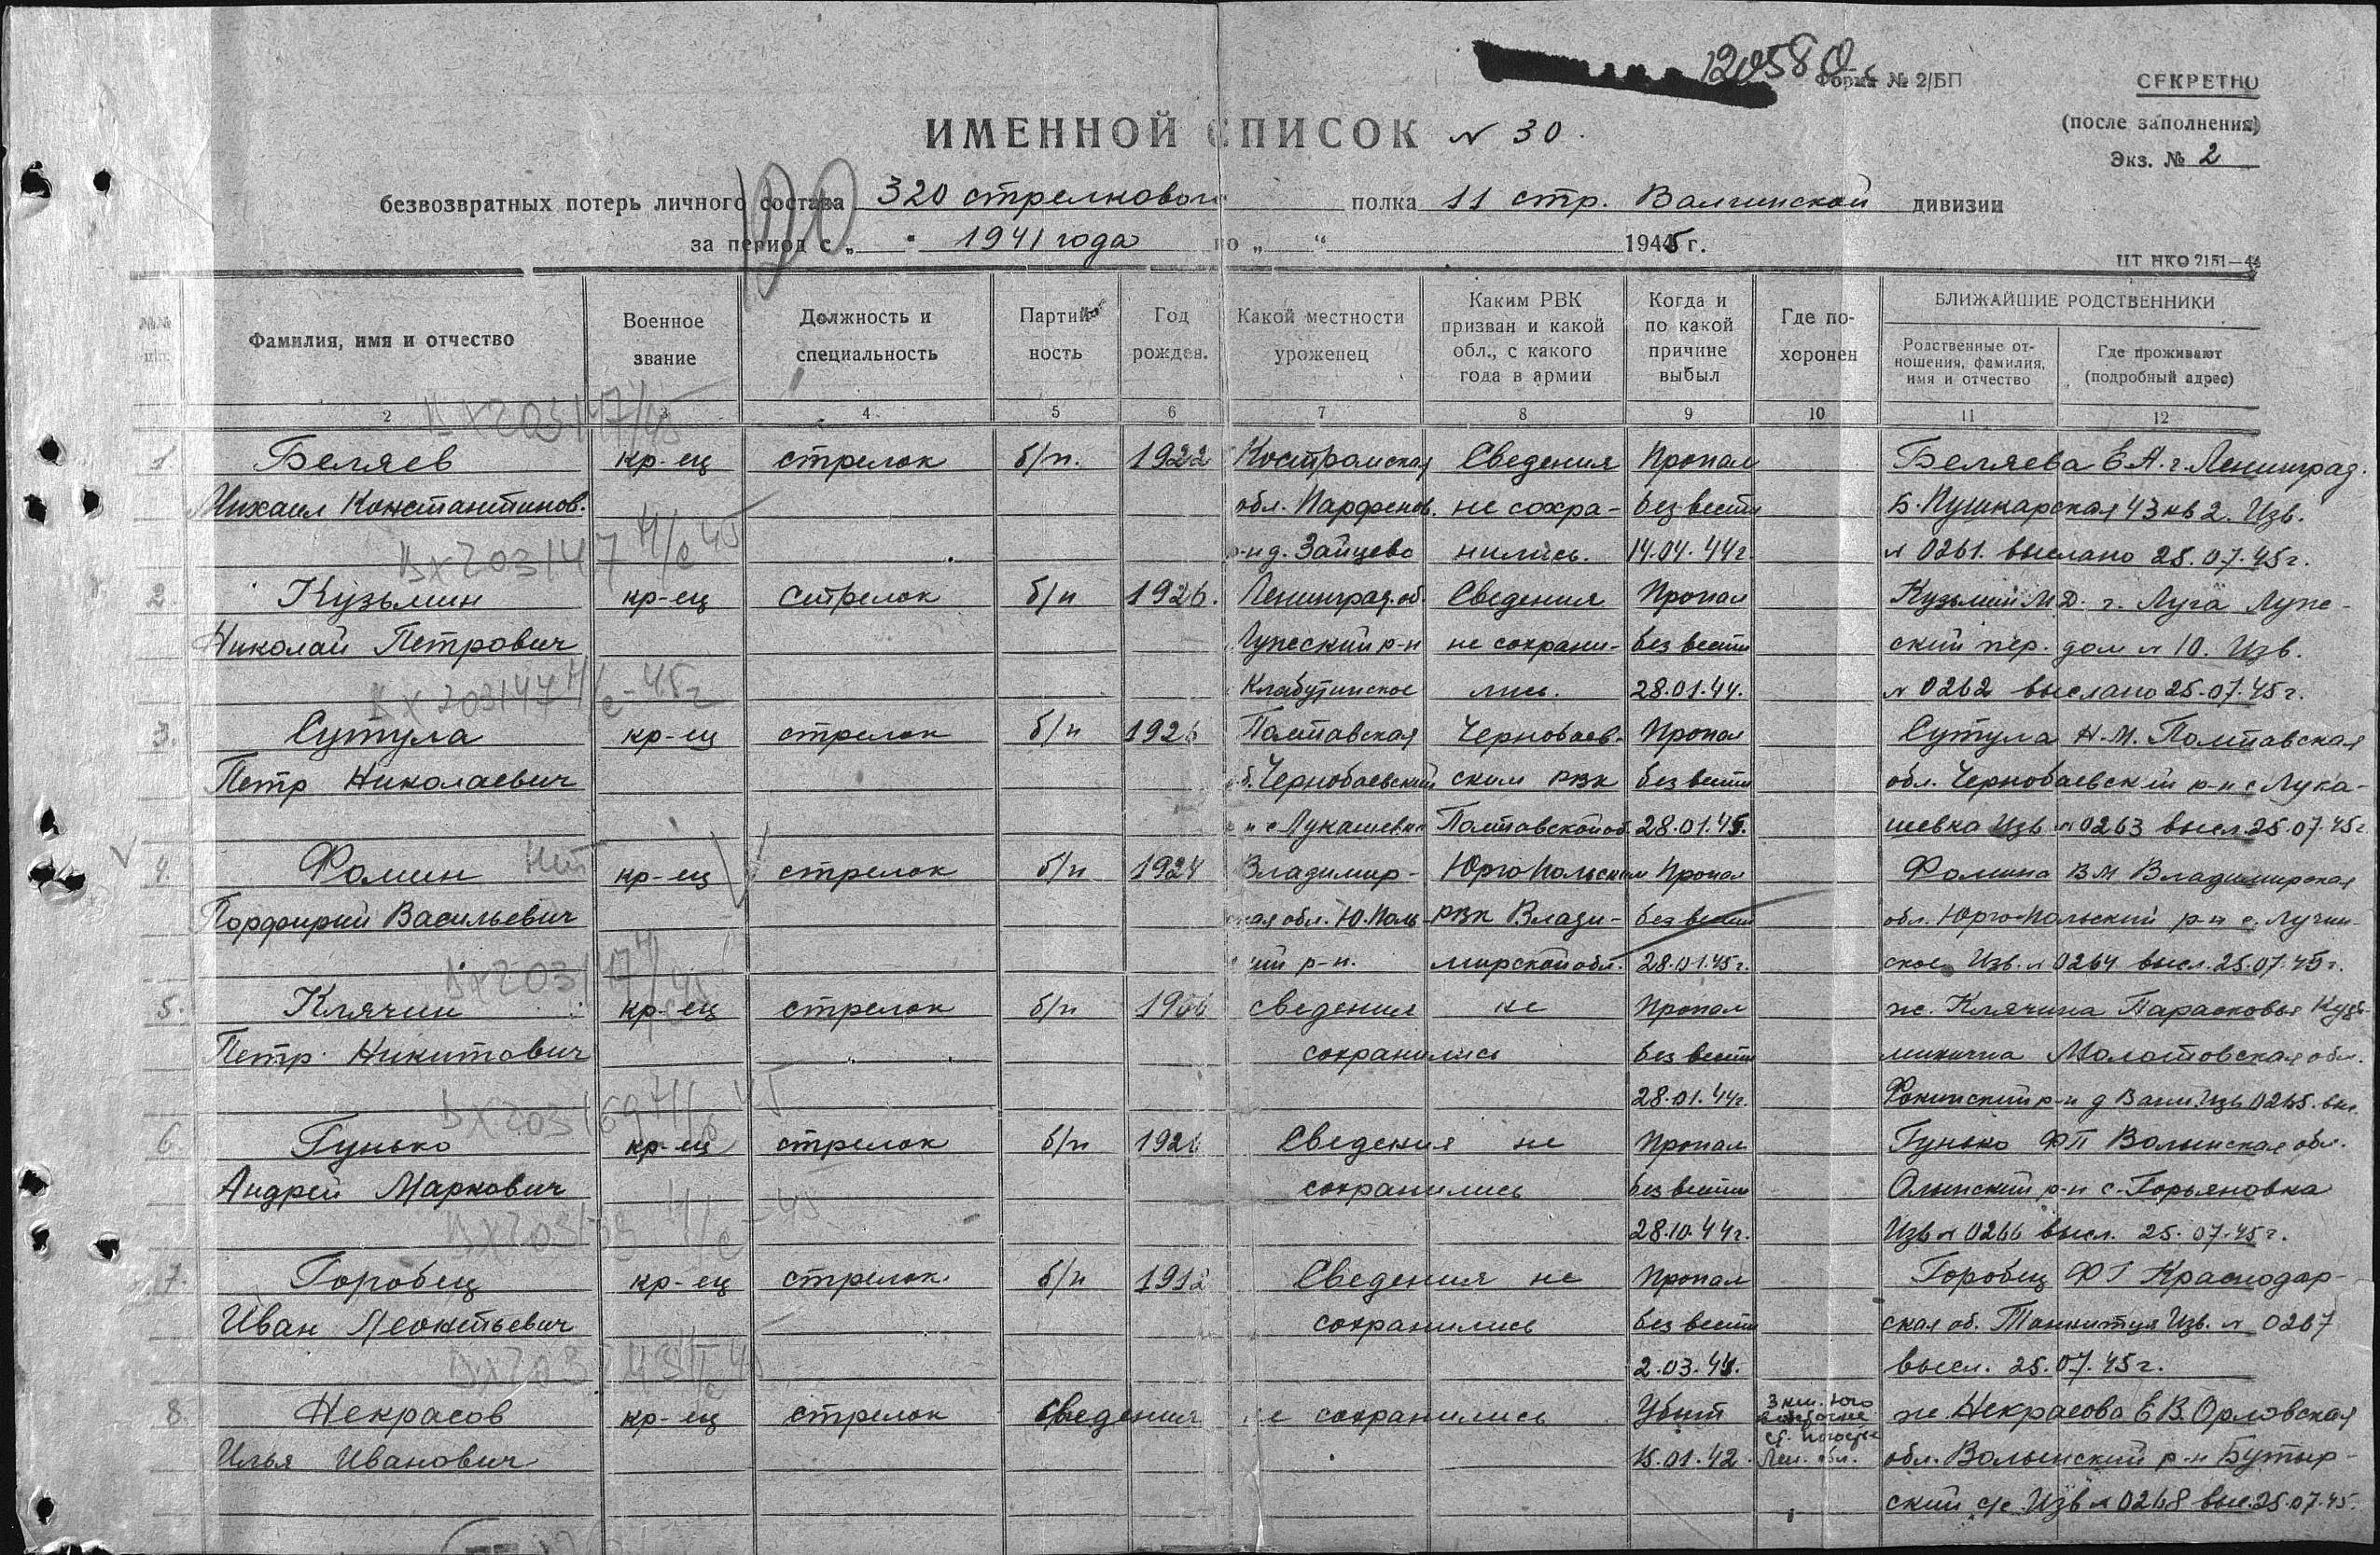 120580
Форма № 2/БП
СЕКРЕТНО
(после заполнения)
Экз. № 2
ИМЕННОЙ СПИСОК № 30.
безвозвратных потерь личного состава 320 стрелкового полка 11 стр. Валгинской дивизии
за период с „ " 1941 года по „ " 1945 г.
ЦТ НКО 2151—44
№№ п/п.
Фамилия, имя и отчество
Военное звание
Должность и специальность
Партийность
Год рожден.
Какой местности уроженец
Каким РВК призван и какой обл., с какого года в армии
Когда и по какой причине выбыл
Где похоронен
БЛИЖАЙШИЕ РОДСТВЕННИКИ
Родственные отношения, фамилия, имя и отчество
Где проживают (подробный адрес)
2 3 4 5 6 7 8 9 10 11 12
1. Беляев кр-ец стрелок б/п. 1922 Костромская Сведения Пропал Беляева Е.А. г. Ленинград.
Михаил Константинов. обл. Парфенов. не сохра- без вести Б. Пушкарская 43 кв 2. Изв.
р-н д. Зайцево нились. 14.04.44г. № 0261. выслано 25.07.45г.
2. Кузьмин кр-ец стрелок б/п 1926. Ленинград. об. Сведения Пропал Кузьмин М.Д. г. Луга Луж-
Николай Петрович Лужский р-н не сохрани- без вести ский пер. дом № 10. Изв.
лись. 28.01.44. № 0262 выслано 25.07.45г.
3. Сутула кр-ец стрелок б/п 1926 Полтавская Чернобаев- Пропал Сутула Н.М. Полтавская
Петр Николаевич об. Чернобаевский ским РВК без вести обл. Чернобаевский р-н с Лука-
н с Лукашевка Полтавской об. 28.01.45. шевка Изв № 0263 высл. 25.07.45г.
4. Фомин нет кр-ец стрелок б/п 1924 Владимир- Юрго Польским Пропал Фомина ВМ Владимирская
Порфирий Васильевич ская обл. Ю. Поль РВК Влади- без вести обл. Юрго-Польский р-н с. Лучин-
ий р-н. мирской обл. 28.01.45г. ское Изв. № 0264 высл. 25.07.45г.
5. Клячин кр-ец стрелок б/п сведения не Пропал ж. Клячина Парасковья Кузь-
Петр Никитович сохранились без вести минична Молотовская обл.
28.01.44г. Фокинский р-н д Изв 0265.
6. Гунько кр-ец стрелок б/п Сведения не Пропал Гунько ФП Волынская обл.
Андрей Маркович сохранились без вести р-н с.
28.10.44г. Изв № 0266 высл. 25.07.45г.
7. Горобец кр-ец стрелок. б/п 1912 Сведения не Пропал Горобец ФГ Краснодар-
Иван Леонтьевич сохранились без вести ская об. Изв. № 0267
2.03.44. высл. 25.07.45г.
8. Некрасов кр-ец стрелок сведения не сохранились Убит 3 км. юго ст. Погостье Лен. обл. ж. Некрасова Е.В. Орловская
Илья Иванович 15.01.42. обл. Волынский р-н Бутыр-
ский с/с Изв № 0268 высл. 25.07.45.